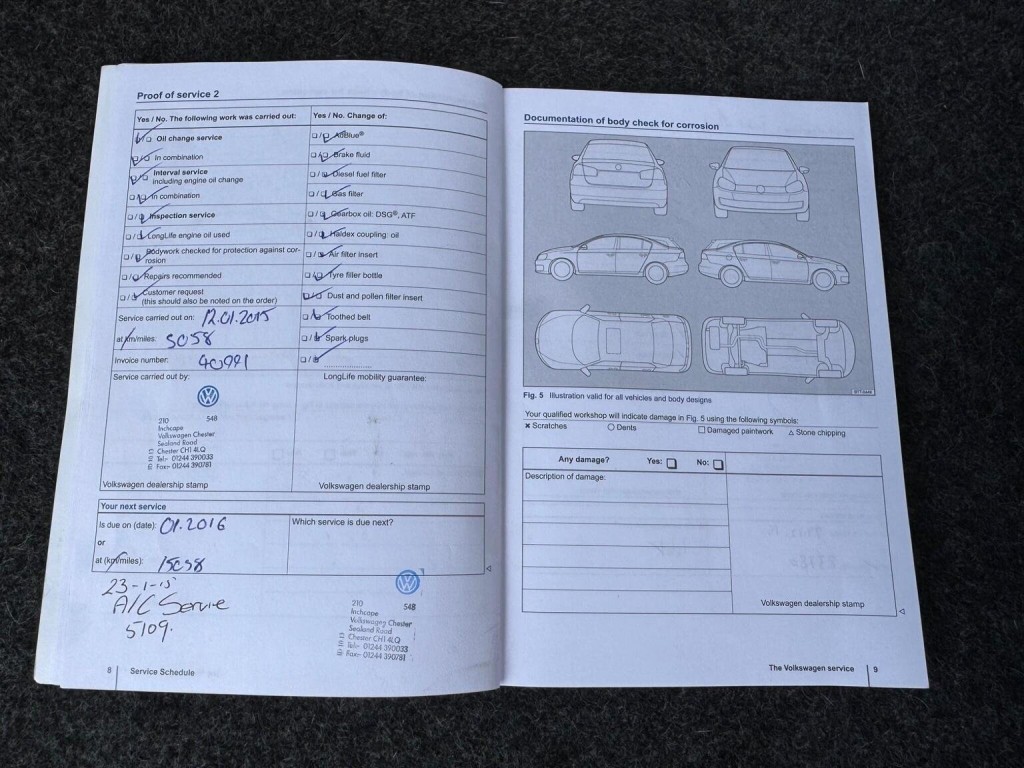 Proof of service 2
Yes / No. The following work was carried out:
Oil change service
In combination
Interval service
including engine oil change
In combination
Inspection service
LongLife engine oil used
Bodywork checked for protection against cor-
rosion
Repairs recommended
Customer request
(this should also be noted on the order)
Service carried out on: 12.01.2015
at km/miles: 5058
Invoice number: 40991
Yes / No. Change of:
AdBlue®
Brake fluid
Diesel fuel filter
Gas filter
Gearbox oil: DSG®, ATF
Haldex coupling: oil
Air filter insert
Tyre filler bottle
Dust and pollen filter insert
Toothed belt
Spark plugs
Service carried out by:
210 548
Inchcape
Volkswagen Chester
Sealand Road
Chester CH1 4LQ
Tel:- 01244 390033
Fax:- 01244 390781
Volkswagen dealership stamp
LongLife mobility guarantee:
Volkswagen dealership stamp
Your next service
Is due on (date): 01.2016
or
at (km/miles): 15058
Which service is due next?
23-1-15
A/C Service
5109.
210 548
Inchcape
Volkswagen Chester
Sealand Road
Chester CH1 4LQ
Tel:- 01244 390033
Fax:- 01244 390781
8 Service Schedule
Documentation of body check for corrosion
Fig. 5 Illustration valid for all vehicles and body designs
Your qualified workshop will indicate damage in Fig. 5 using the following symbols:
× Scratches ○ Dents □ Damaged paintwork △ Stone chipping
Any damage? Yes: □ No: □
Description of damage:
Volkswagen dealership stamp
The Volkswagen service 9